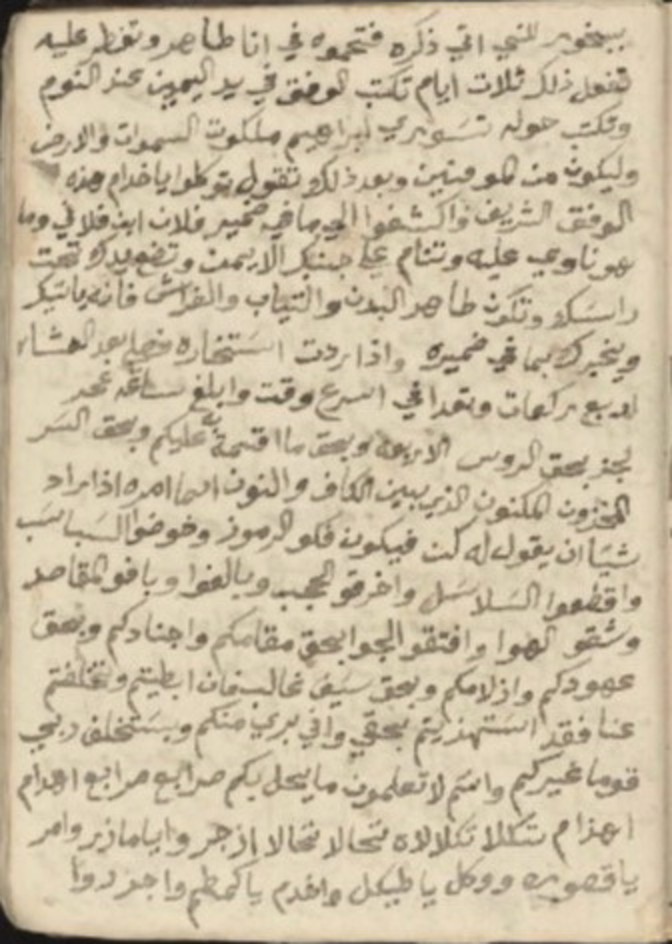 ببخور للنبي اتي ذكره فتحموه في انا طاهر وتفطر عليه
تفعل ذلك ثلاث ايام تكتب الوفق في يد اليمين عند النوم
وتكتب حوله نري ابراهيم ملكوت السموات والارض
وليكون من الموقنين وبعد ذلك وتقول توكلوا يا خدام هذه
الوفق الشريف واكشفوا الي ما في ضمير فلان ابن فلاني وما
هو ناوي عليه وتنام علي جنبك الايمن وتضع يدك تحت
راسك وتكون طاهر البدن والثياب والفراش فانه ياتيك
ويخبرك بما في ضميره واذا اردت استخاره فصلي بعد العشاء
اربع ركعات وتقرا في اسرع وقت وابلغ ساعة
بحق الروس الاربعه وبحق ما اقسمة به عليكم وبحق السر
المخزون المكنون الذي بين الكاف والنون انما امره اذا اراد
شيا ان يقول له كن فيكون فكو الرموز وخوضوا السباسب
واقطعوا السلاسل واخرقو الحجب وبالغوا وبافو المقاصد
وشقو الهوا وافتقو الجو بحق مقامكم واجنادكم وبحق
عهودكم وازلامكم وبحق سيف غالب فان ابطيتم وتخلفتم
عنا فقد استهزيتم بحقي واني بري منكم ويستخلف ربي
قوما غيركم وانتم لا تعلمون ما يحل بكم صرايع صرايع اهزام
اهزام تكلا تكلالاه نحالا نحالا ازجر واياما زر وامر
يا قصوره ووكل يا طيكل واقدم يا كمطم واجز دوا